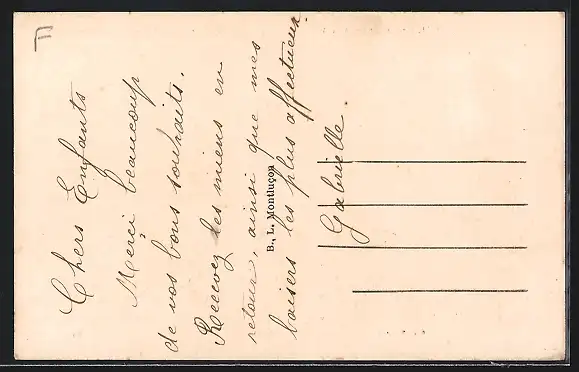 Chers Enfants
Merci beaucoup
de vos bons souhaits.
Recevez les miens en
retour, ainsi que mes
baisers les plus affectueux.
Gabrielle.
B., L. Montluçon